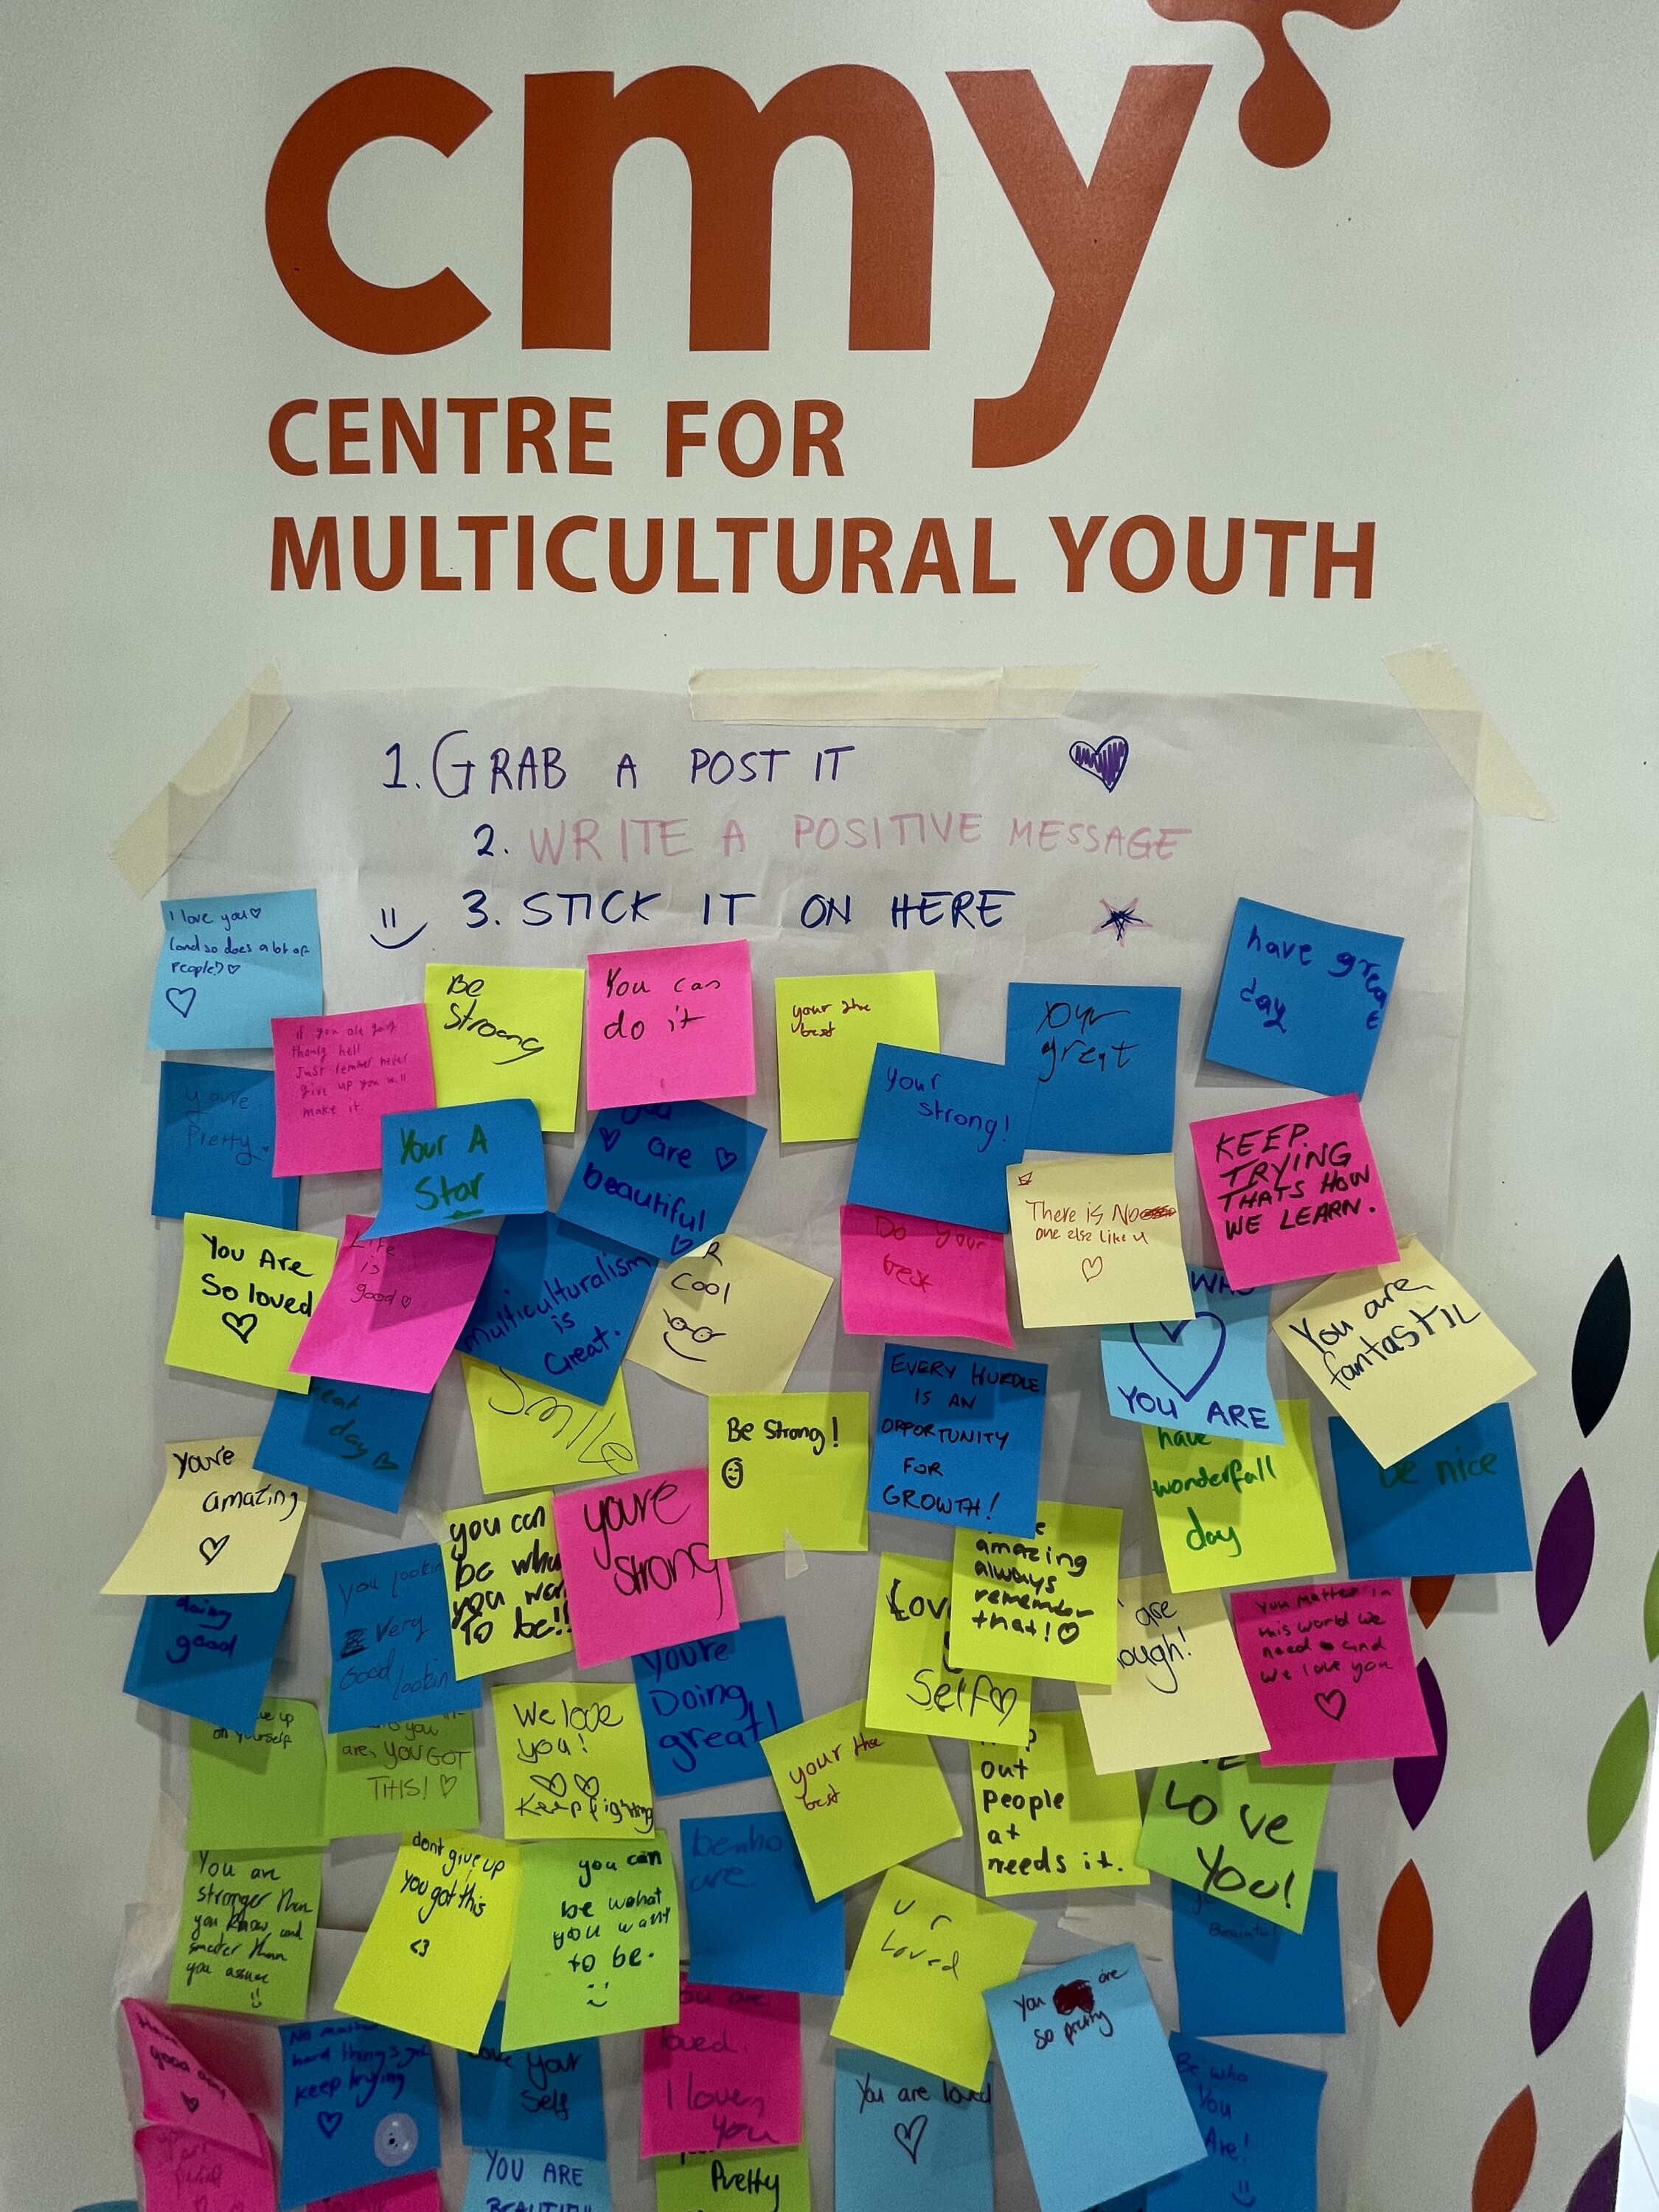 cmy
CENTRE FOR
MULTICULTURAL YOUTH
1. GRAB A POST IT
2. WRITE A POSITIVE MESSAGE
3. STICK IT ON HERE
I love you♡
(and so does a lot of
people!)♡
if you are going
just
never
give up you will
make it
Be
Strong
You can
do it
your the
best
your
strong!
your
great
have great
day
you're
Pretty.
Your A
Star
you
are
beautiful
There is No
one else like u
KEEP.
TRYING
THATS HOW
WE LEARN.
You Are
So loved
Life
is
good
multiculturalism
is
Great.
R
Cool
Do your
best
YOU ARE
You are
fantastic
eat
day
Smile
Be Strong!
EVERY HURDLE
IS AN
OPPORTUNITY
FOR
GROWTH!
have
wonderfull
day
be nice
you're
amazing
doing
good
you lookin
Very
Good lookin
you can
be who
you wan
To be!!
youre
strong
Love
Self
amazing
always
remember
that!
are
ough!
You matter in
this world we
need and
we love you
ve up
on yourself
you
are, YOU GOT
THIS!
We love
you!
Keep fighting
You're
Doing
great!
your the
best
out
people
at
needs it.
LOVE
YOU!
You are
stronger than
you know and
smarter than
you assume
dont give up
you got this
<3
you can
be wohat
you want
to be.
are.
u r
Loved
You are
so pretty
Have
good day
No matter
hard things get
keep trying
Love Your
Self
You are
loved.
I love
you
You are loved
Be who
You
Are!
YOU ARE
BEAUTIFUL
Pretty